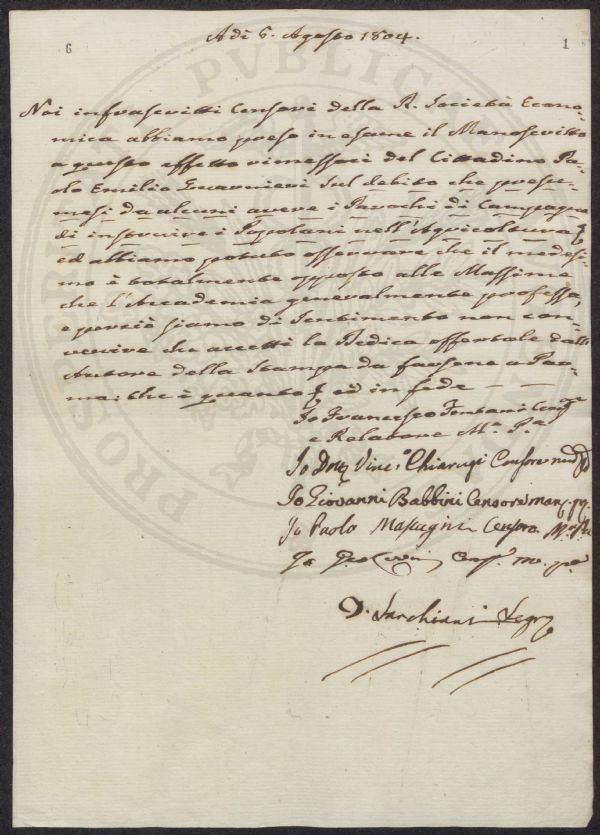 6
1
A di 6. Agosto 1804.
Noi infrascritti Censori della R. Società Econo-
mica abbiamo preso in esame il Manoscritto
a questo effetto rimessoci del Cittadino Pa-
olo Emilio Guarnieri sul debito che presu-
mesi da alcuni avere i Parochi di Campagna
di instruire i Popolani nell'Agricoltura
ed abbiamo potuto osservare che il medesi-
mo è totalmente opposto alle Massime
che l'Accademia generalmente professa,
e perciò siamo di sentimento non con-
venire che accetti la Dedica offertale dall'
Autore della Stampa da farsene a Par-
ma: che è quanto ed in fede
Io Francesco Fontani
e Relatore
Io Vinc. Chiarugi Censore
Io Giovanni Babbini Censore
Io Paolo Mascagni Censore
Io
Sarchiani Segr
PVBLICAE
PROSPERITATI